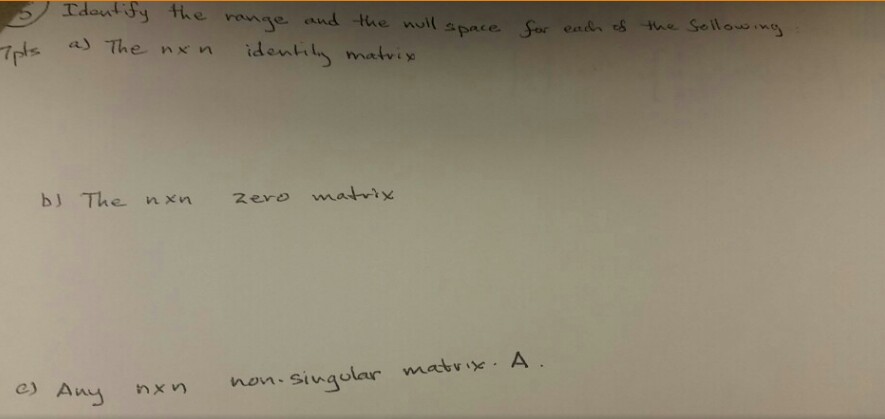 5) Identify the range and the null space for each of the following
7pts a) The nxn identity matrix
b) The nxn zero matrix
c) Any nxn non-singular matrix. A.